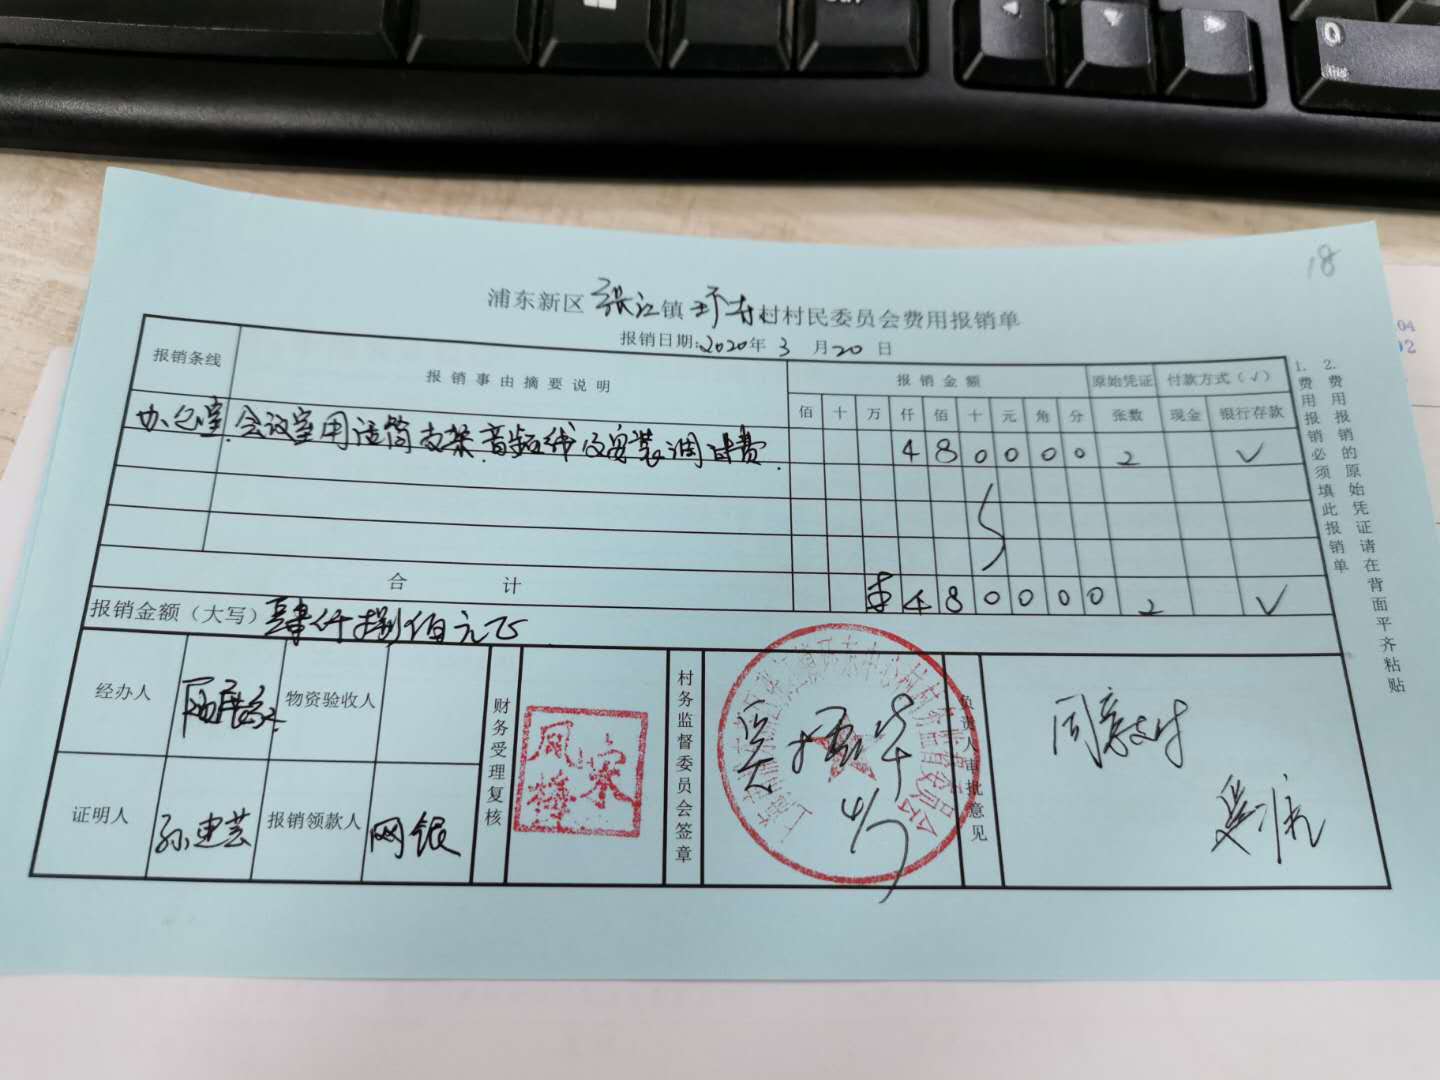 18
浦东新区张江镇环东村村民委员会费用报销单
报销日期:2020年3月20日
报销条线 报销事由摘要说明 报销金额 原始凭证 付款方式(√)
佰 十 万 仟 佰 十 元 角 分 张数 现金 银行存款
办公室 会议室用话筒支架、音频线及安装调试费. 4 8 0 0 0 0 2 √
合计 ¥ 4 8 0 0 0 0 2 √
报销金额(大写) 肆仟捌佰元正
经办人 物资验收人
证明人 孙建芸 报销领款人 网银
财务受理复核
宋梅凤
村务监督委员会签章
吴振华
4/7
负责人审批意见
同意支付
1.费用报销必须填此报销单
2.费用报销的原始凭证请在背面平齐粘贴
Ins
04
02